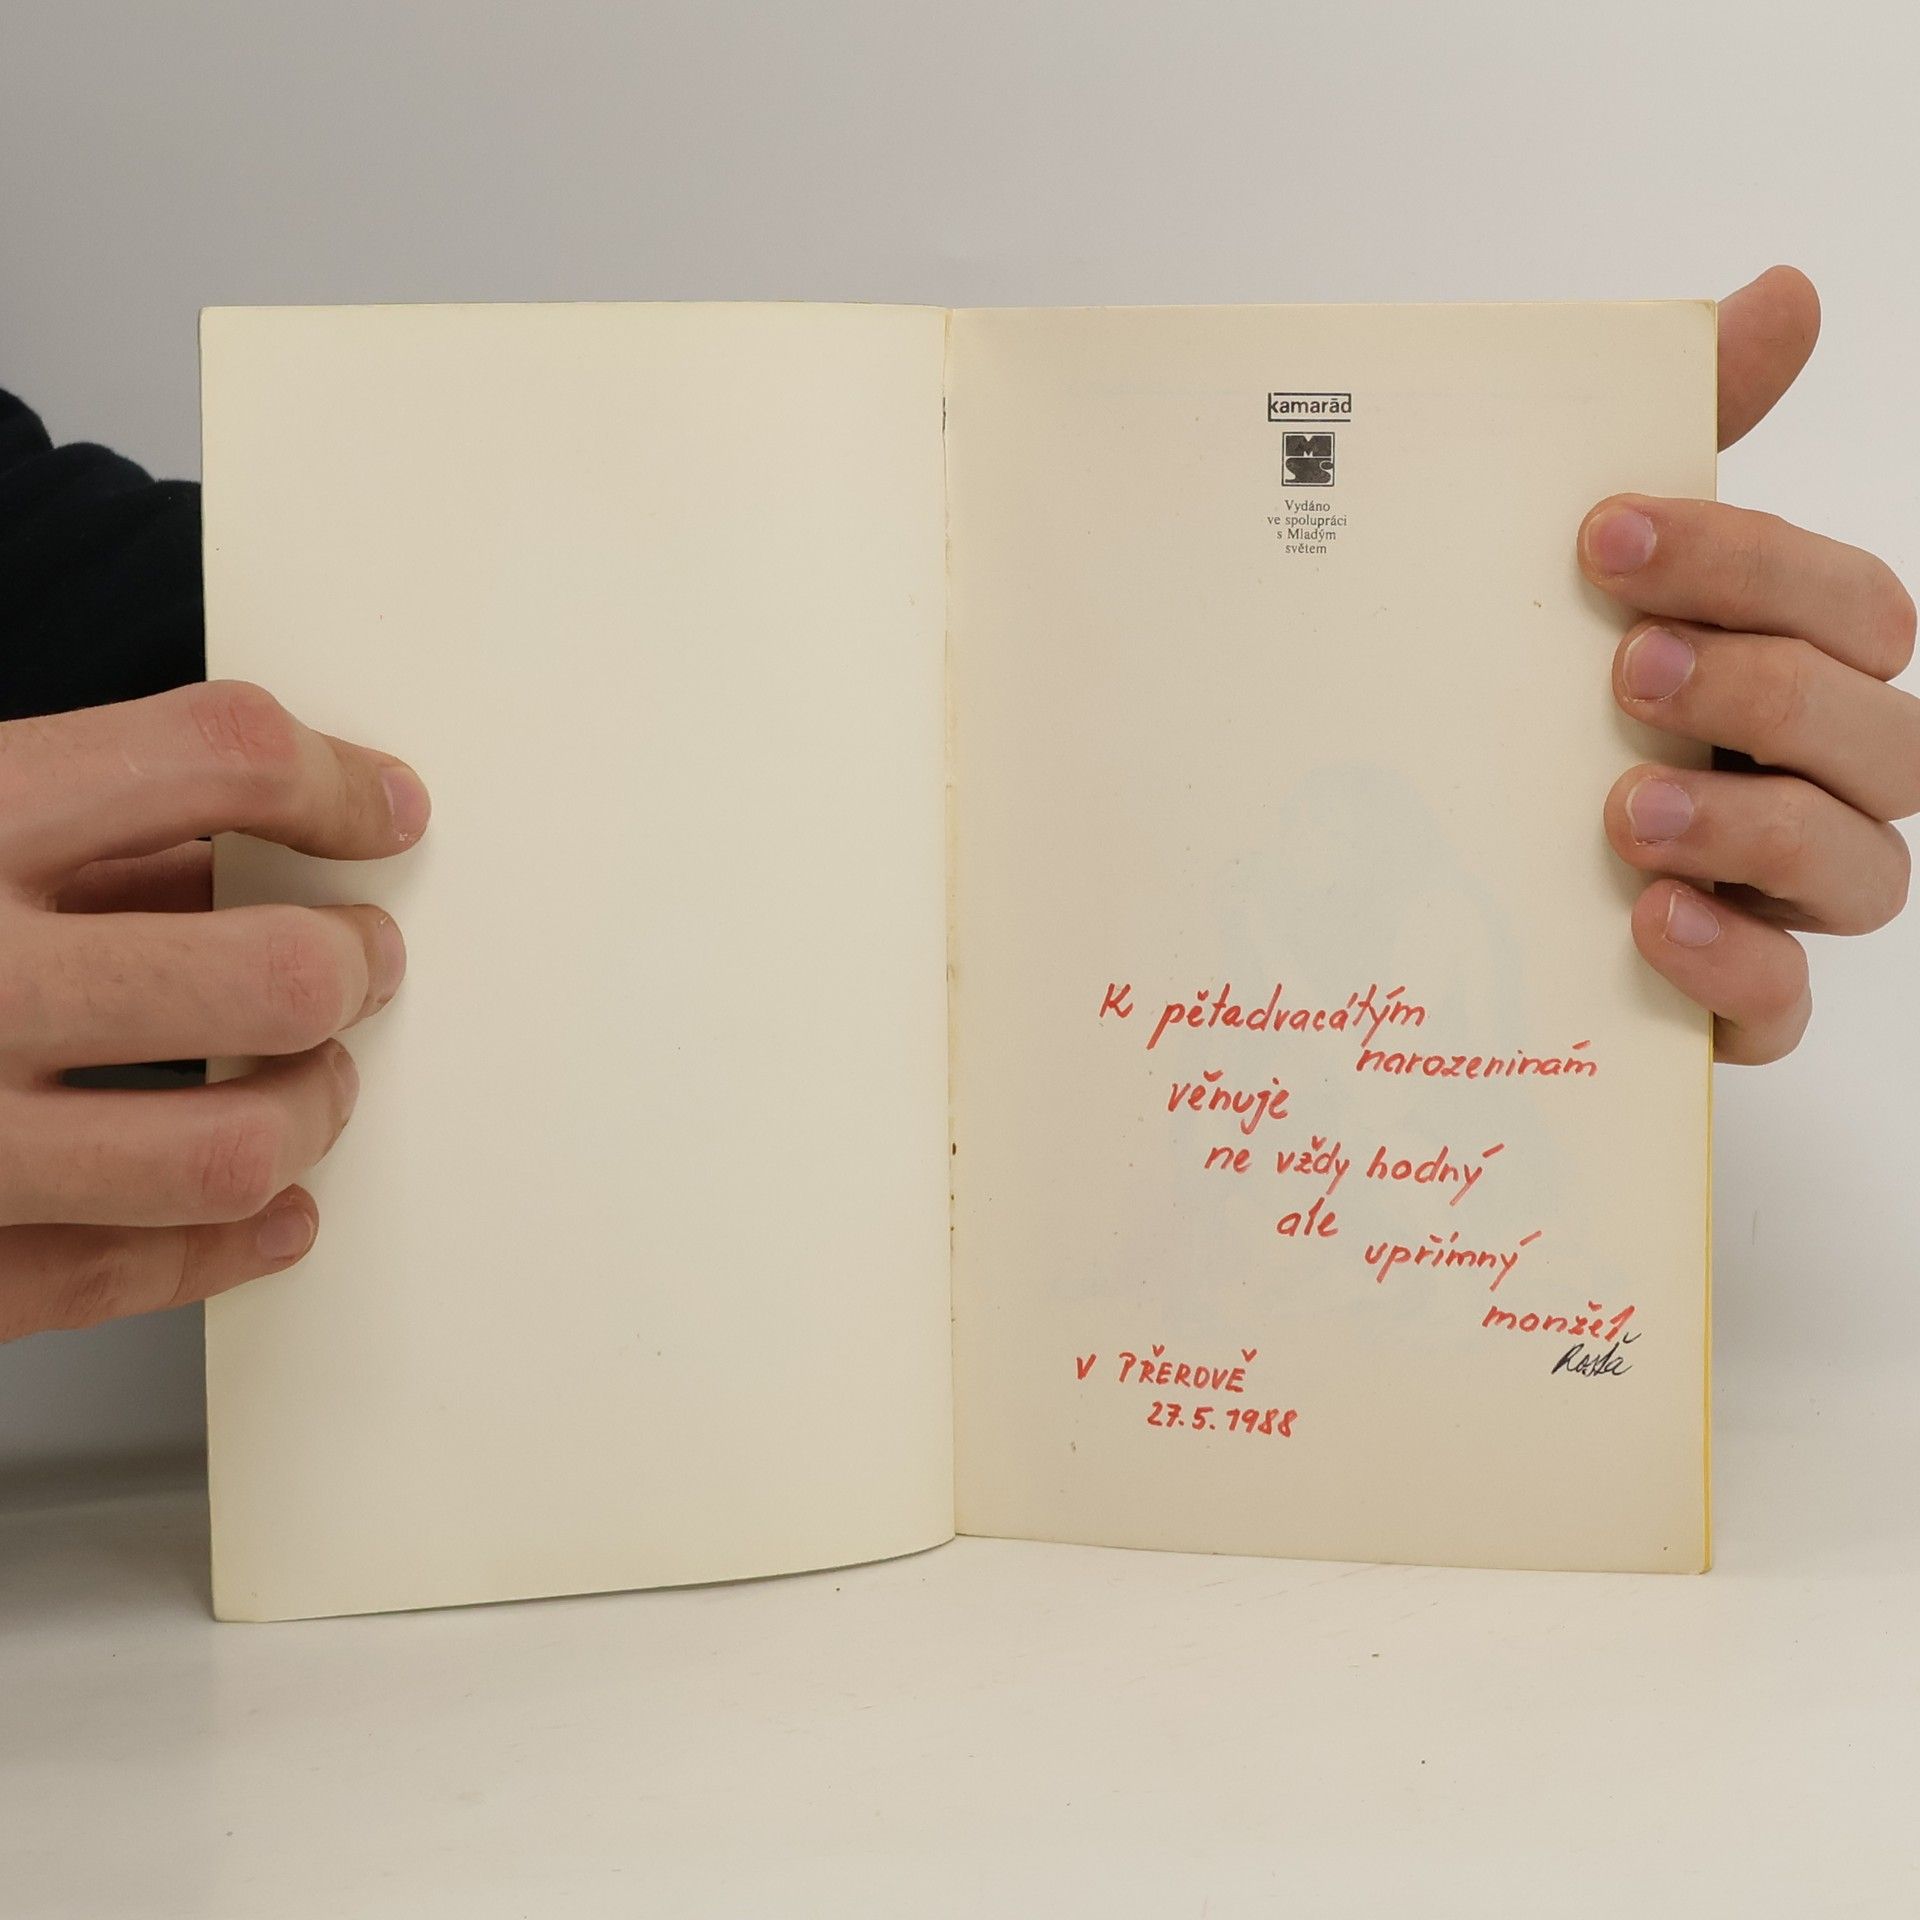 kamarád
MS
Vydáno
ve spolupráci
s Mladým
světem
K pětadvacátým
narozeninám
věnuje
ne vždy hodný
ale
upřímný
manžel
V PŘEROVĚ
27.5.1988